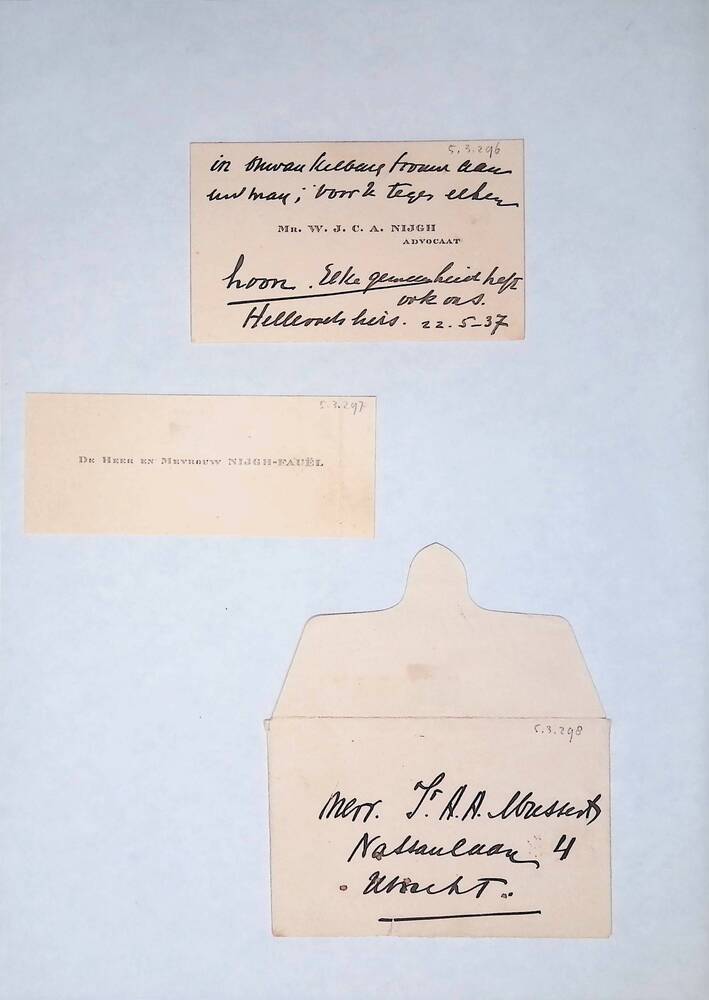 5.3.296
in onwankelbare trouw aan
uw man; voor & tegen elken
MR. W. J. C. A. NIJGH
ADVOCAAT
hoon. Elke gemeenheid heft
ook ons.
Hellevoetsluis. 22.5-37
5.3.297
DE HEER EN MEVROUW NIJGH-FAUËL
5.3.298
Mevr. Ir A.A. Mussert
Nassaulaan 4
Utrecht.